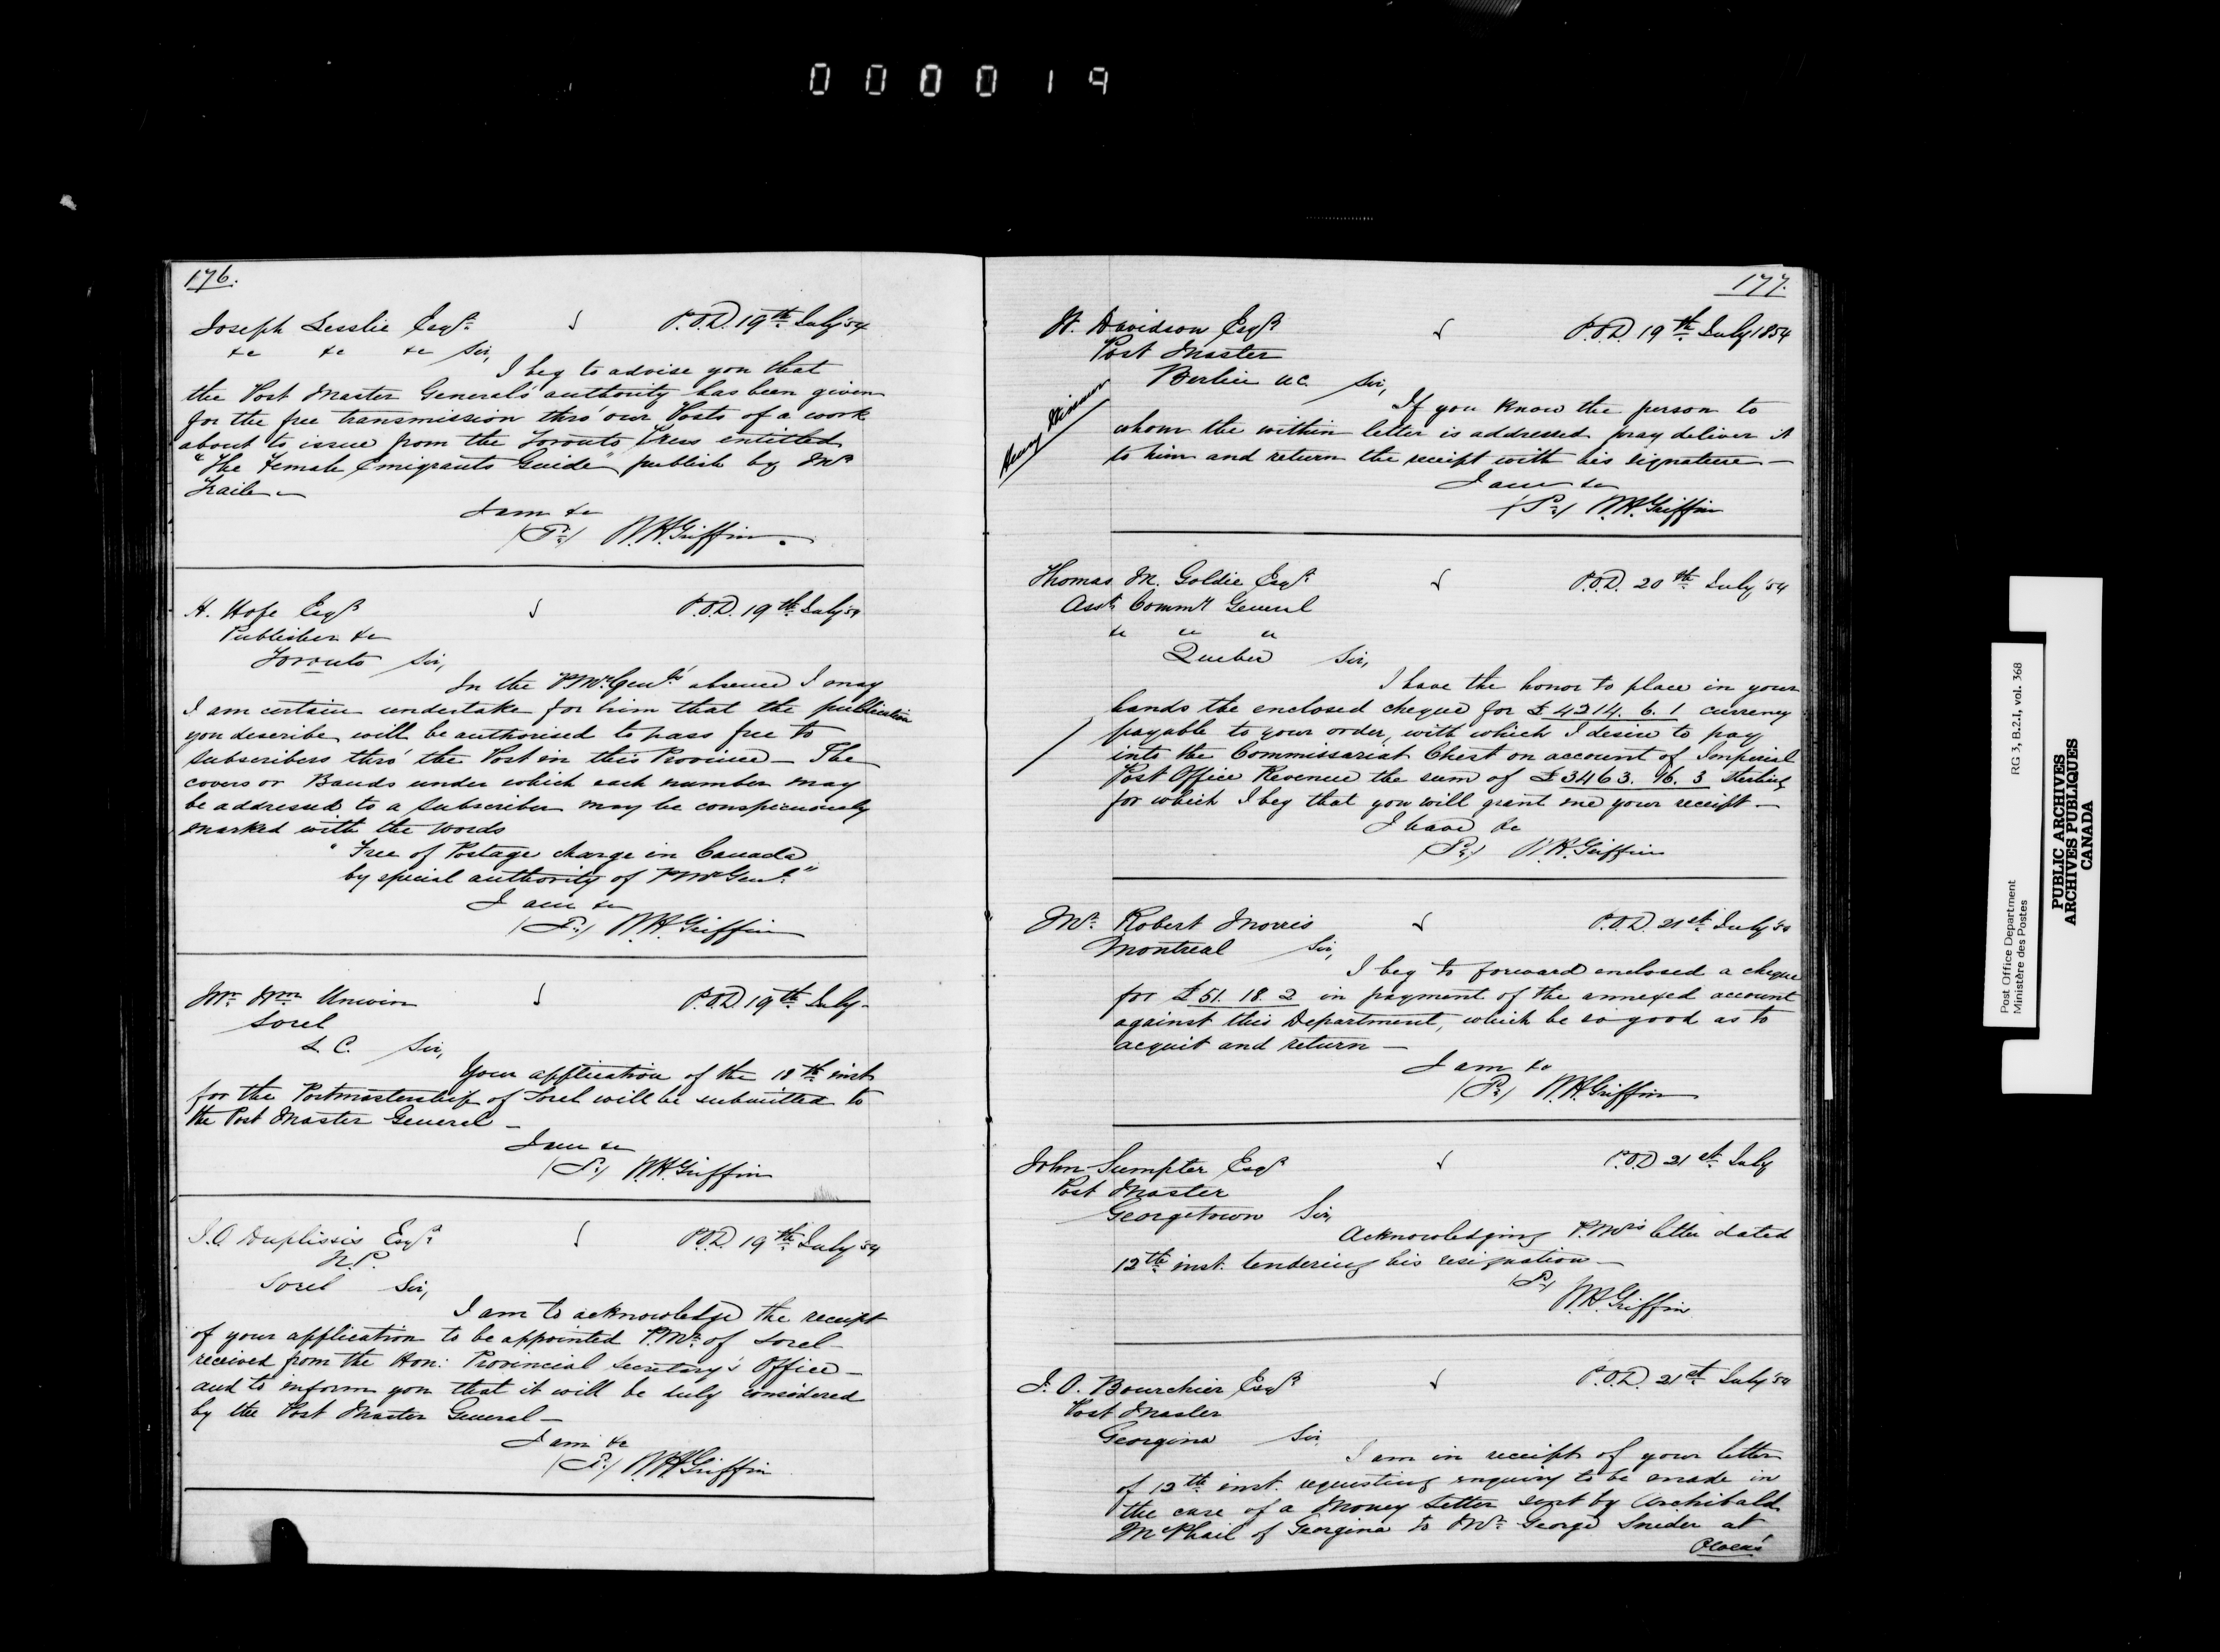 000019
176.
Joseph Lesslie Esqr. P.O.D. 19th July '54
&c &c &c Sir,
I beg to advise you that
the Post Master General's authority has been given
for the free transmission thro' our Posts of a work
about to issue from the Toronto Press entitled
"The Female Emigrants Guide" publish by Mrs
Traile
I am &c
W.H. Griffin.
H. Hope Esqr P.O.D. 19th July '54
Publisher &c
Toronto Sir,
In the P.Mr. Genl's absence I may
I am certain undertake for him that the publication
you describe will be authorised to pass free to
Subscribers thro' the Post in this Province — The
covers or Bands under which each number may
be addressed to a Subscriber may be conspicuously
marked with the words
"Free of Postage charge in Canada
by special authority of PMr Genl."
I am &c
W.H. Griffin
Mr. Wm. Unwin P.O.D 19th July
Sorel
L.C. Sir,
Your application of the 18th inst
for the Postmastership of Sorel will be submitted to
the Post Master General —
I am &c
W.H. Griffin
J.O. Duplissis Esqr. P.O.D. 19th July '54
N.P.
Sorel Sir,
I am to acknowledge the receipt
of your application to be appointed P.Mr. of Sorel
received from the Hon: Provincial Secretary's Office —
and to inform you that it will be duly considered
by the Post Master General —
I am &c
W.H. Griffin
177.
W. Davidson Esqr P.O.D. 19th July 1854
Post Master
Berlin U.C. Sir,
If you know the person to
whom the within letter is addressed pray deliver it
to him and return the receipt with his signature —
I am &c
W.H. Griffin
Henry
Thomas M. Goldie Esqr. P.O.D. 20th July '54
Asst. Commy General
&c &c &c
Quebec Sir,
I have the honor to place in your
hands the enclosed cheque for £4214. 6. 1 currency
payable to your order, with which I desire to pay
into the Commissariat Chest on account of Imperial
Post Office Revenue the sum of £3463. 16. 3 Sterling
for which I beg that you will grant me your receipt —
I have &c
W.H. Griffin
Mr. Robert Morris P.O.D. 21st July '54
Montreal Sir,
I beg to forward enclosed a cheque
for £51. 18. 2 in payment of the annexed account
against this Department, which be so good as to
acquit and return —
I am &c
W.H. Griffin
John Sumpter Esqr P.O.D 21st July
Post Master
Georgetown Sir,
Acknowledging P.Mr's letter dated
12th inst. tendering his resignation —
W.H. Griffin
J.O. Bourchier Esqr P.O.D. 21st July '54
Post Master
Georgina Sir
I am in receipt of your letter
of 12th inst. requesting enquiry to be made in
the case of a Money Letter sent by Archibald
McPhail of Georgina to Mr. George Snider at
Post Office Department RG 3, B.2.I, vol. 368
Ministère des Postes
PUBLIC ARCHIVES
ARCHIVES PUBLIQUES
CANADA